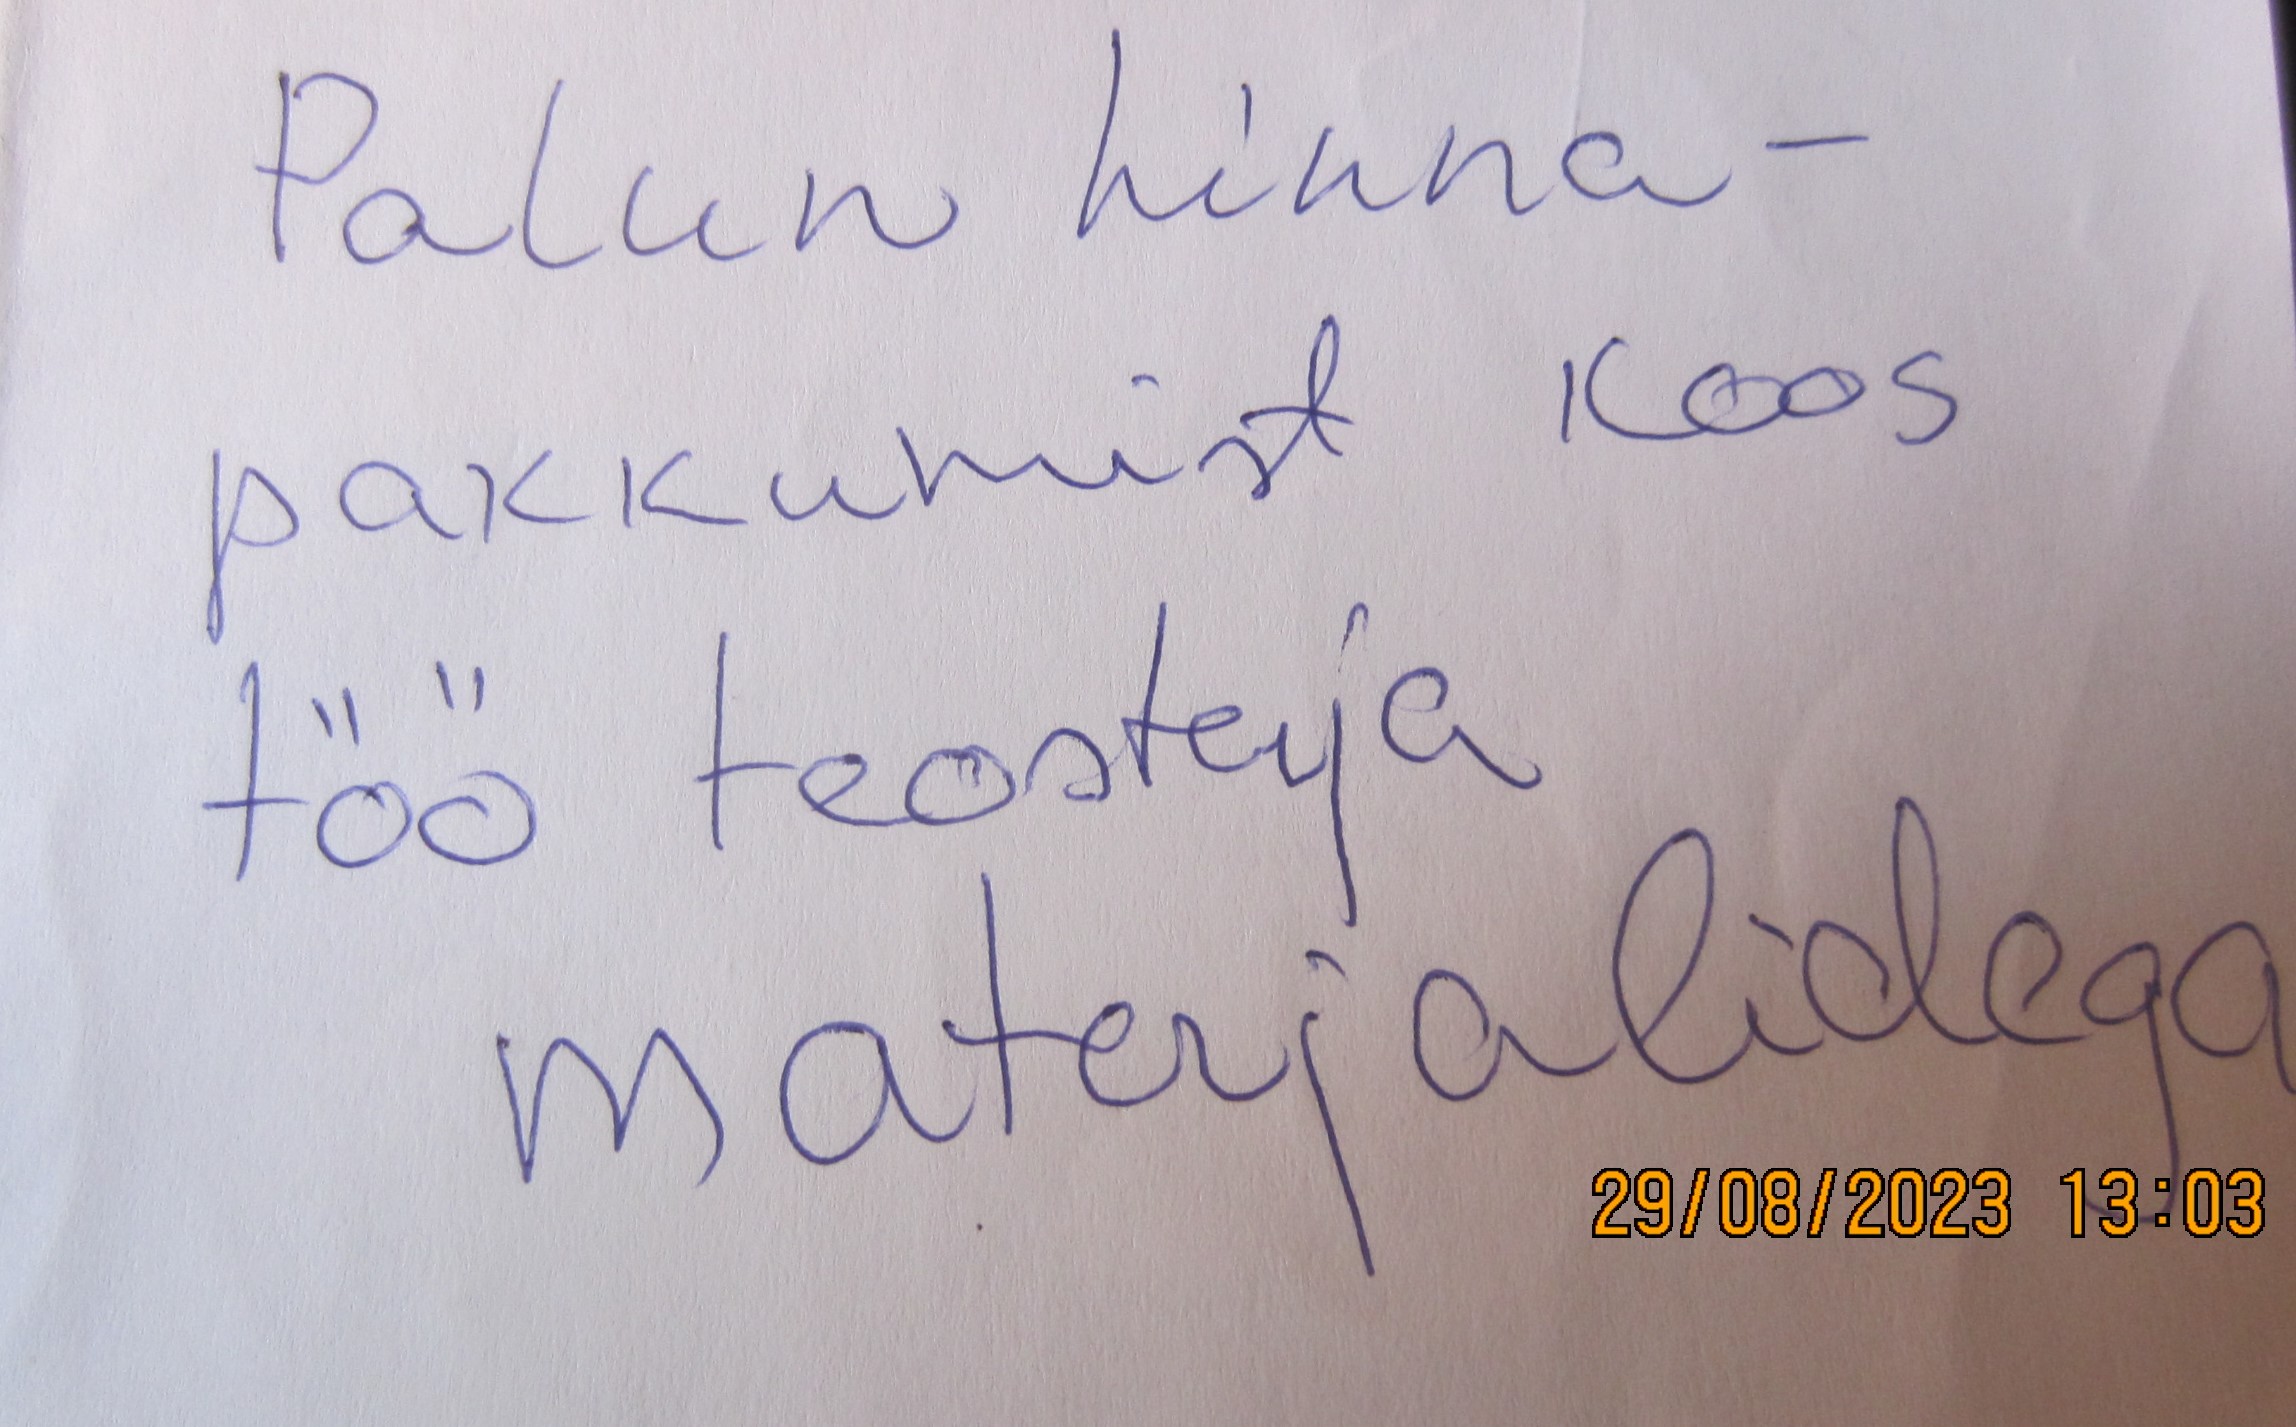 Palun hinna-
pakkumist koos
töö teosterja
materjalidega
29/08/2023 13:03